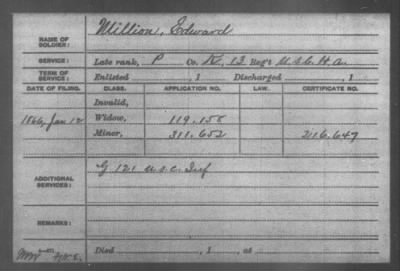 NAME OF SOLDIER: Million, Edward
SERVICE: Late rank, P Co. K, 13 Reg't U.S.C.H.A.
TERM OF SERVICE: Enlisted , 1 Discharged , 1
DATE OF FILING. CLASS. APPLICATION NO. LAW. CERTIFICATE NO.
Invalid,
1866, Jan 12 Widow, 119.158
Minor, 311.652 216.647
ADDITIONAL SERVICES: G 121 U.S.C. Inf
REMARKS:
Died , 1 , at